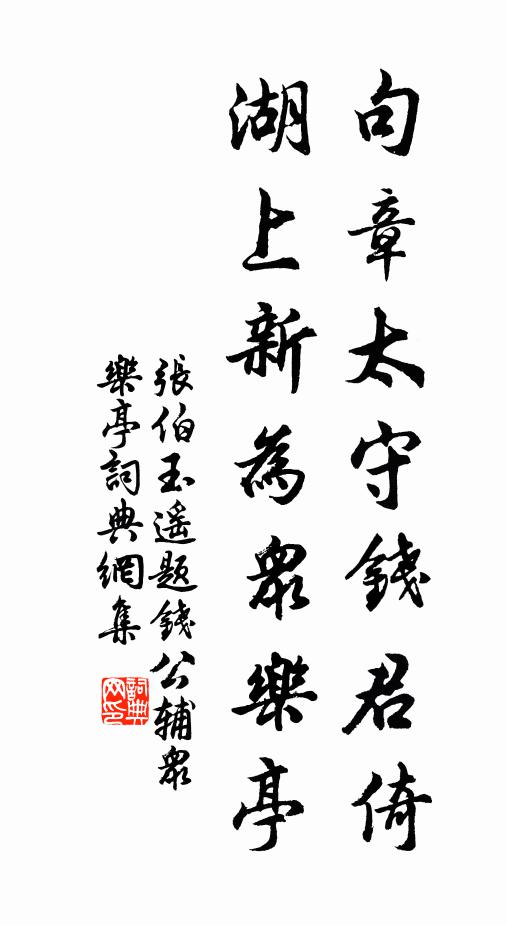 句章太守錢君倚
湖上新為眾樂亭
張伯玉遥題錢公辅眾
樂亭詞典網集
詞典网印